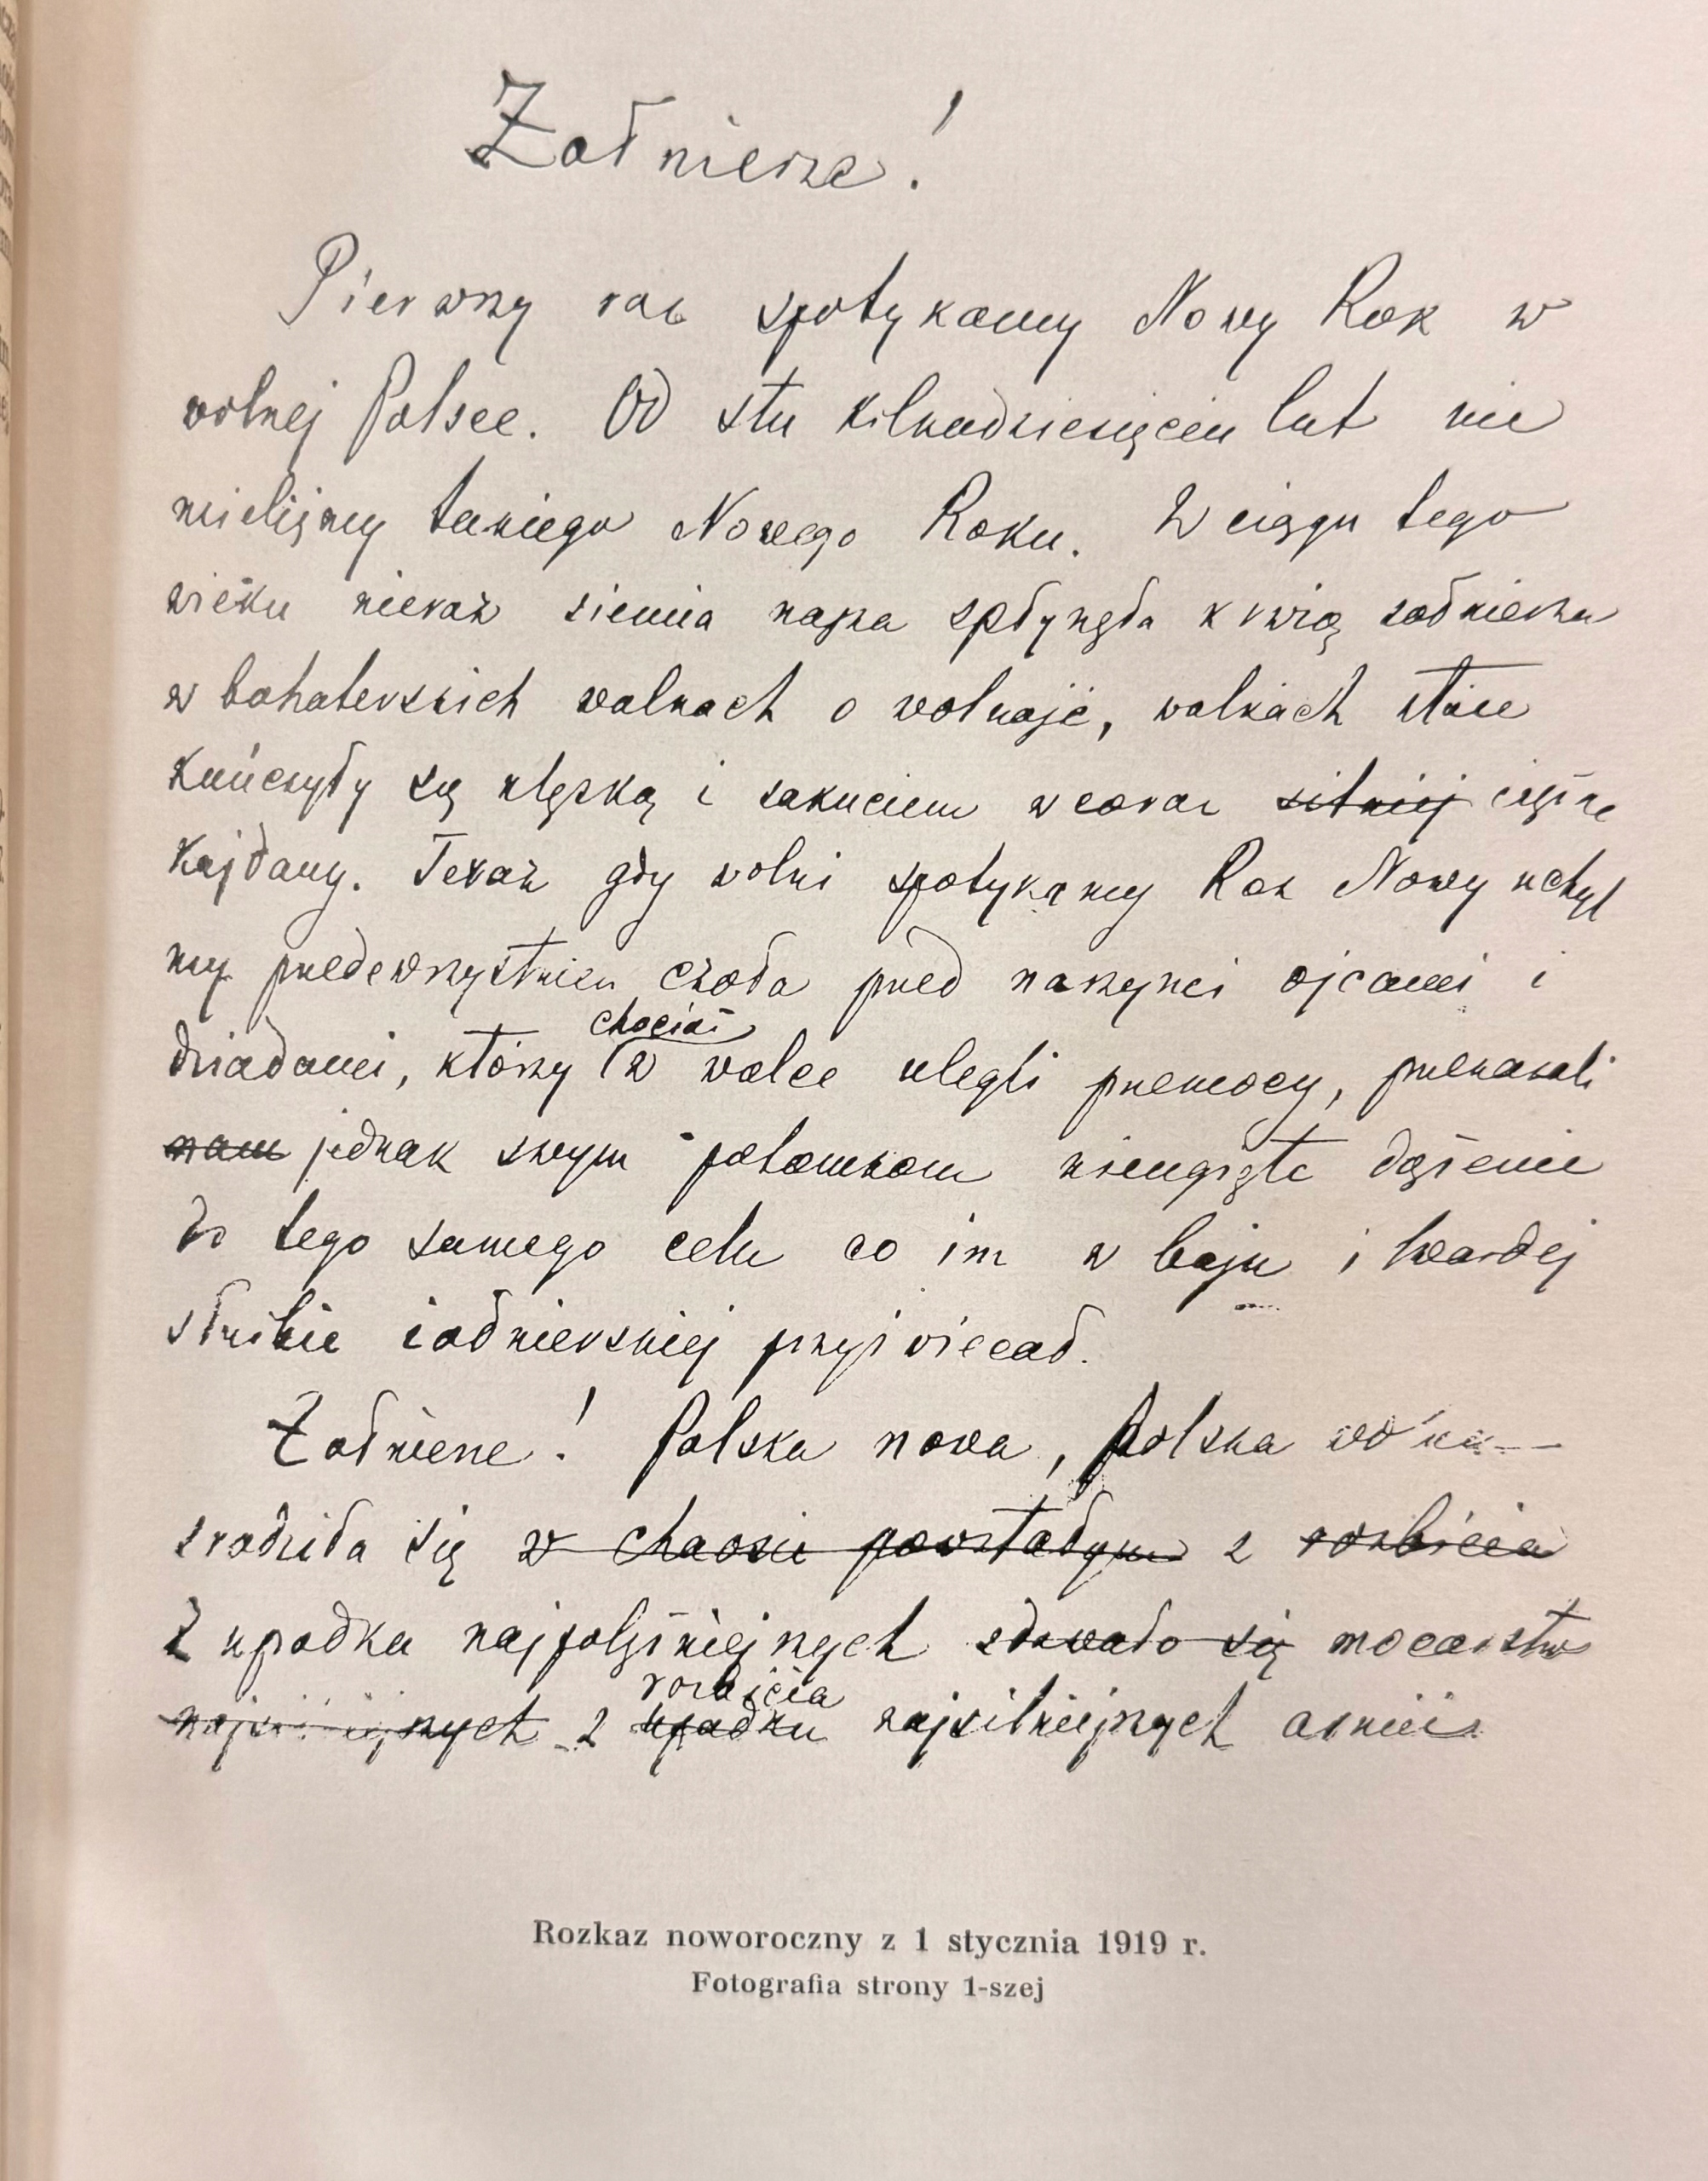 Żołnierze!
Pierwszy raz spotykamy Nowy Rok w
wolnej Polsce. Od stu kilkudziesięciu lat nie
mieliśmy takiego Nowego Roku. W ciągu tego
wieku nieraz ziemia nasza spłynęła krwią żołnierza
w bohaterskich walkach o wolność, walkach stale
kończyły się klęską i zakuciem w coraz silniej cięższe
kajdany. Teraz gdy wolni spotykamy Rok Nowy uchyl
my przedewszystkiem czoła przed naszymi ojcami i
chociaż
dziadami, którzy w walce ulegli przemocy, przekazali
nam jednak swym potomkom nieugięte dążenie
do tego samego celu co im w boju i twardej
służbie żołnierskiej przyświecał.
Żołnierze! Polska nowa, Polska
zrodziła się w chaosie powstałym z rozbicia
z upadku najpotężniejszych zdawało się mocarstw
rozbicia
z upadku najsilniejszych armii
Rozkaz noworoczny z 1 stycznia 1919 r.
Fotografia strony 1-szej